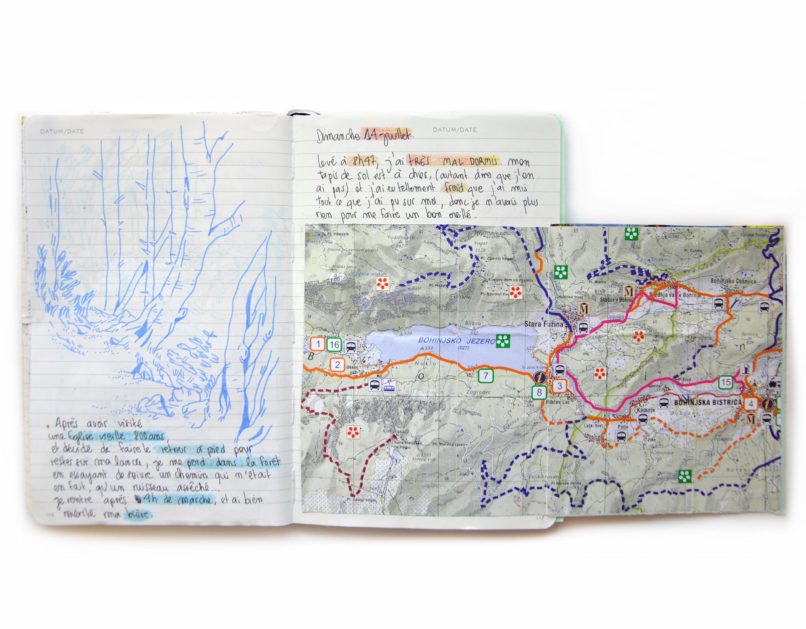 DATUM/DATE
. Après avoir visité
une Eglise vieille 800 ans,
et décidé de faire le retour à pied pour
rester sur ma lancée, je me perd dans la forêt
en essayant de suivre un chemin qui n'était
en fait, qu'un ruisseau asséché...
je rentre après 4h de marche, et ai bien
mérité ma bière.
Dimanche 14 juillet.
DATUM/DATE
Levé à 8h47, j'ai TRES MAL DORMIS mon
tapis de sol est à chier, (autant dire que j'en
ai pas) et j'ai eu tellement froid que j'ai mis
tout ce que j'ai pu sur moi, donc je n'avais plus
rien pour me faire un bon oreiller.
Stara Fužina
BOHINJSKO JEZERO
1 16
2
7
8
3
15
4
BOHINJSKA BISTRICA